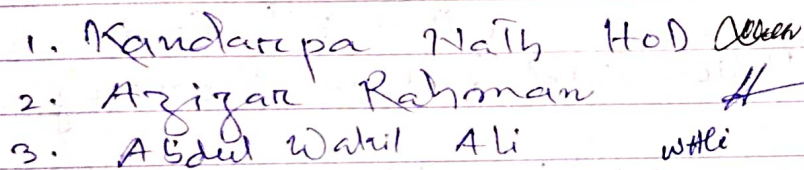 1. Kandarpa Nath HOD
2. Azizar Rahman
3. Abdul Wakil Ali WAli